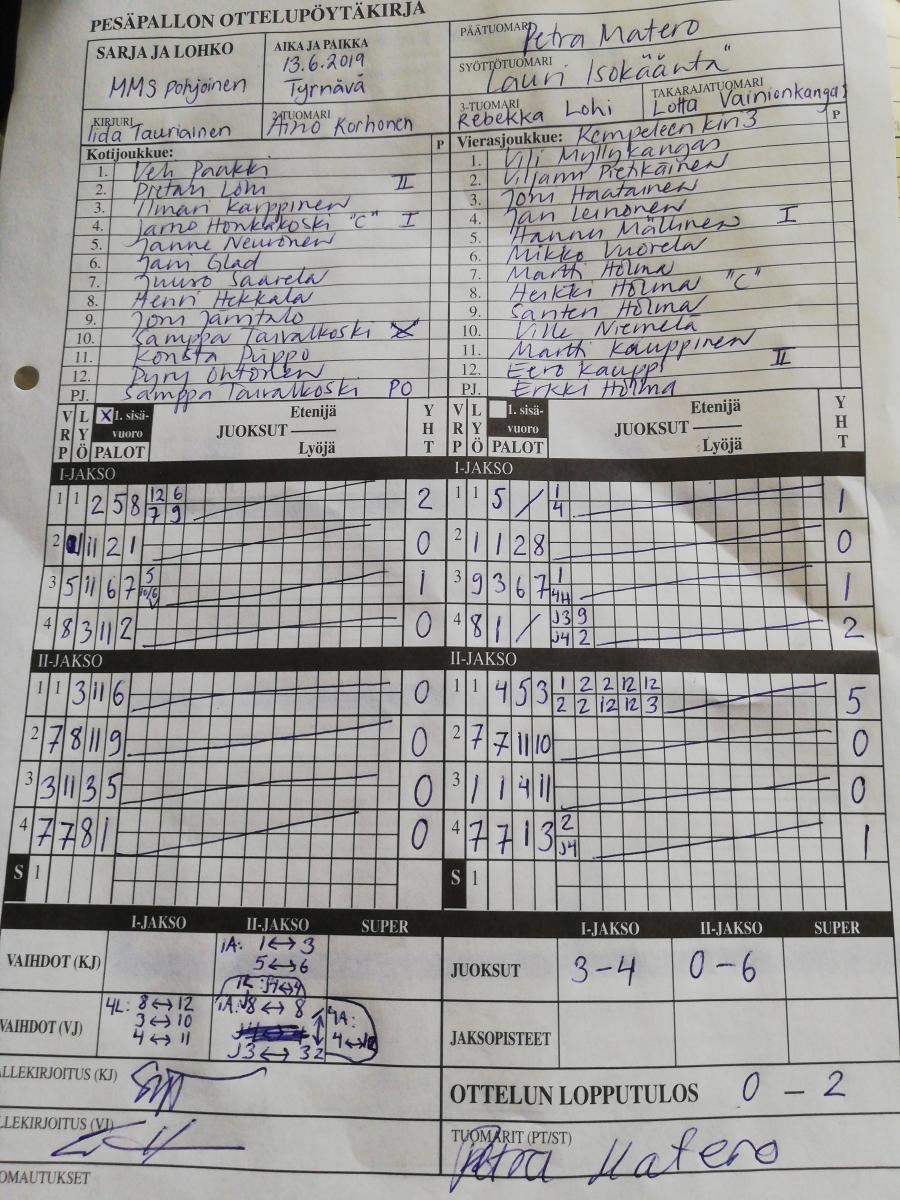 PESÄPALLON OTTELUPÖYTÄKIRJA
SARJA JA LOHKO
MMS Pohjoinen
AIKA JA PAIKKA
13.6.2019
Tyrnävä
PÄÄTUOMARI
Petra Matero
SYÖTTÖTUOMARI
Lauri Isokääntä
KIRJURI
Iida Tauriainen
2-TUOMARI
Aino Korhonen
3-TUOMARI
Rebekka Lohi
TAKARAJATUOMARI
Lotta Vainionkangas
Kotijoukkue: P
1. Veli Paakki
2. Lohi II
3. Ilmari Karppinen
4. Jarno Honkakoski "C" I
5. Janne Neuvonen
6. Jani Glad
7. Juuso Saarela
8. Henri Hekkala
9. Joni Jamtalo
10. Samppa Taivalkoski X
11. Konsta Piippo
12. Pyry Ohtonen
PJ. Samppa Taivalkoski PO
Vierasjoukkue: Kempeleen Kiri 3 P
1. Vili Myllykangas
2. Viljami Pietikäinen
3. Joni Haatainen
4. Jan Leinonen
5. Hannu Mällinen I
6. Mikko Vuorela
7. Martti Holma
8. Heikki Holma "C"
9. Santeri Holma
10. Ville Niemelä
11. Martti Kauppinen
12. Eero Kauppi II
PJ. Erkki Holma
VRP LYÖ X 1. sisävuoro PALOT Etenijä JUOKSUT Lyöjä YHT
VRP LYÖ 1. sisävuoro PALOT Etenijä JUOKSUT Lyöjä YHT
I-JAKSO
1 1 2 5 8 12 6 2
7 9
2 11 2 1 0
3 5 11 6 7 5 1
10/6
4 8 3 11 2 0
I-JAKSO
1 1 5 / 1 1
4
2 1 1 2 8 0
3 9 3 6 7 1 1
4H
4 8 1 / J3 9 2
J4 2
II-JAKSO
1 1 3 11 6 0
2 7 8 11 9 0
3 3 11 3 5 0
4 7 7 8 1 0
S 1
II-JAKSO
1 1 4 5 3 1 2 2 12 12 5
2 2 12 12 3
2 7 7 11 10 0
3 1 1 4 11 0
4 7 7 1 3 2 1
J4
S 1
I-JAKSO II-JAKSO SUPER
VAIHDOT (KJ)
1A: 1 ↔ 3
5 ↔ 6
VAIHDOT (VJ)
4L: 8 ↔ 12
3 ↔ 10
4 ↔ 11
1A: J8 ↔ 8
J3 ↔ 3 2
4A:
4 ↔ 12
I-JAKSO II-JAKSO SUPER
JUOKSUT 3-4 0-6
JAKSOPISTEET
LLEKIRJOITUS (KJ)
LLEKIRJOITUS (VJ)
OMAUTUKSET
OTTELUN LOPPUTULOS 0 - 2
TUOMARIT (PT/ST)
Petra Matero